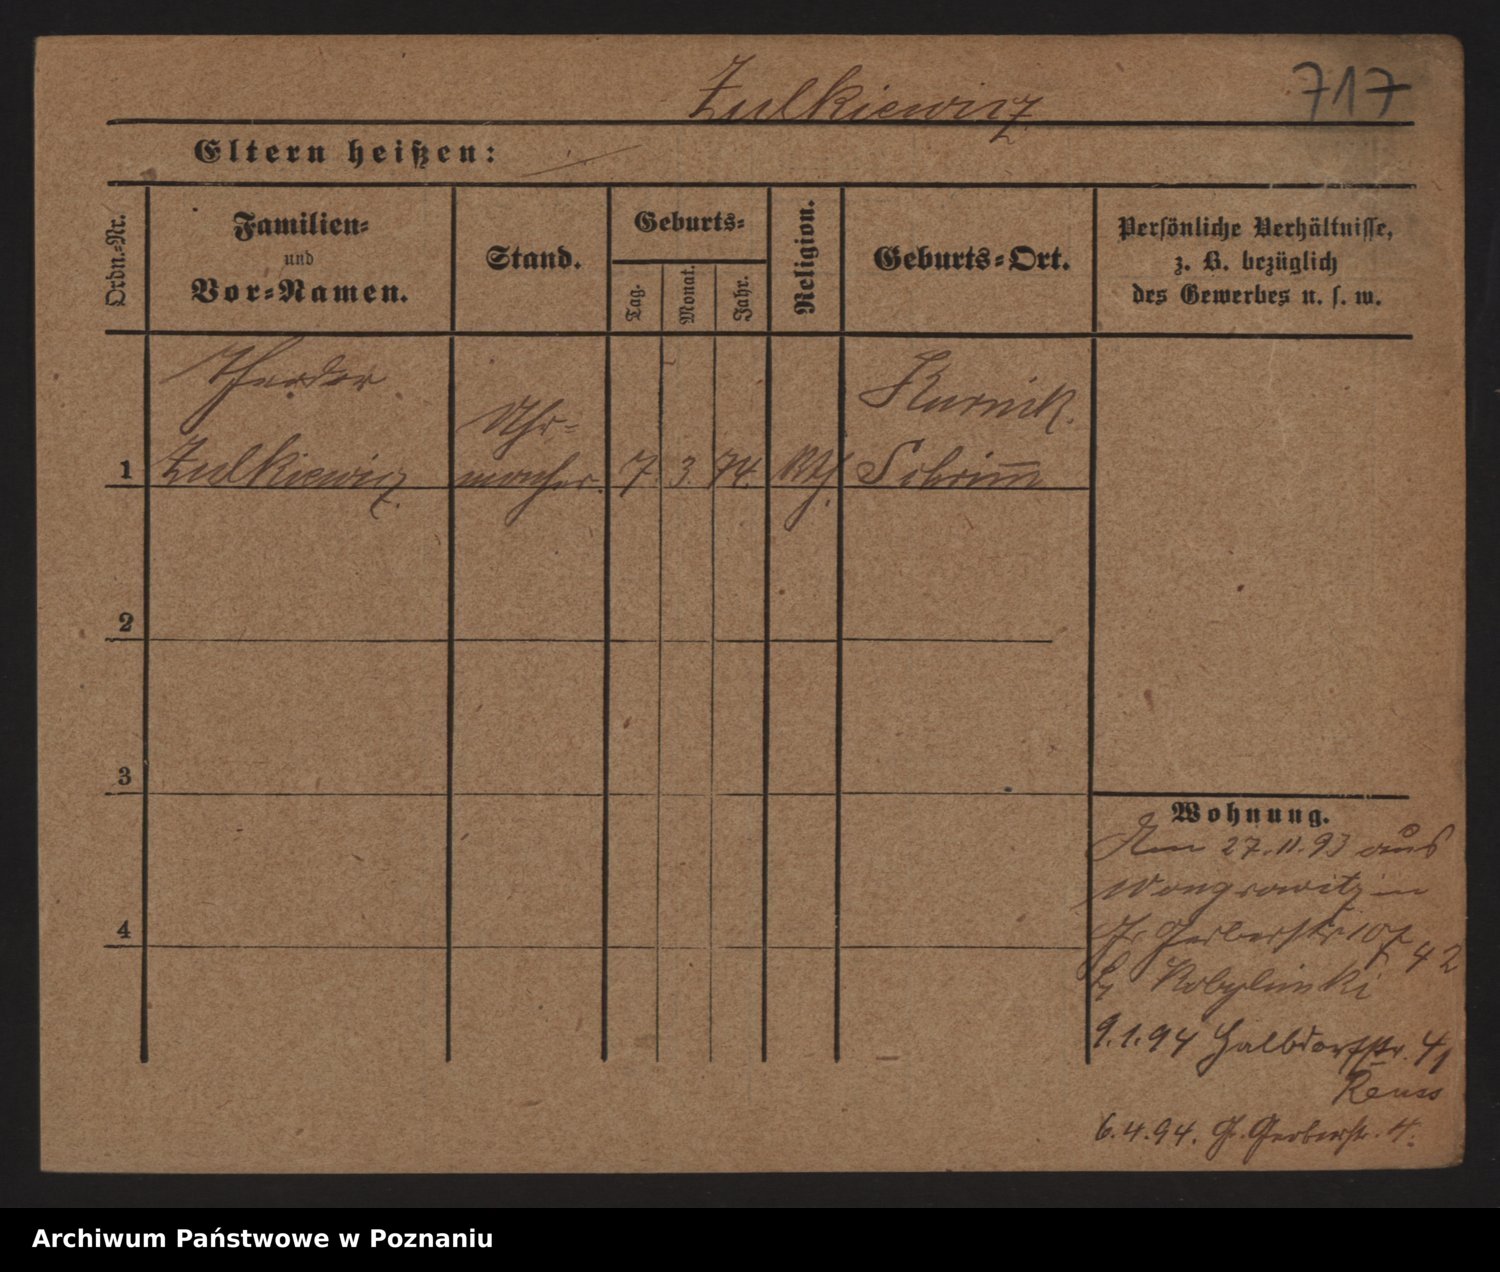 Zulkiewicz
717
Eltern heißen:
Ordn.-Nr.
Familien-
und
Vor-Namen.
Stand.
Geburts-
Tag.
Monat.
Jahr.
Religion.
Geburts-Ort.
Persönliche Verhältnisse,
z. B. bezüglich
des Gewerbes u. s. w.
Theodor
Kurnik.
Uhr-
1 Zulkiewicz. macher. 7. 3. 74. Kth. Schrim̅
2
3
4
Wohnung.
Am 27.11.93 aus
Wongrowitz in
Gr. Gerberstr 10
42
b/ Kobylinski
9.1.94 Halbdorfstr. 41
Reuss
6.4.94. Gr. Gerberstr. 4.
Archiwum Państwowe w Poznaniu